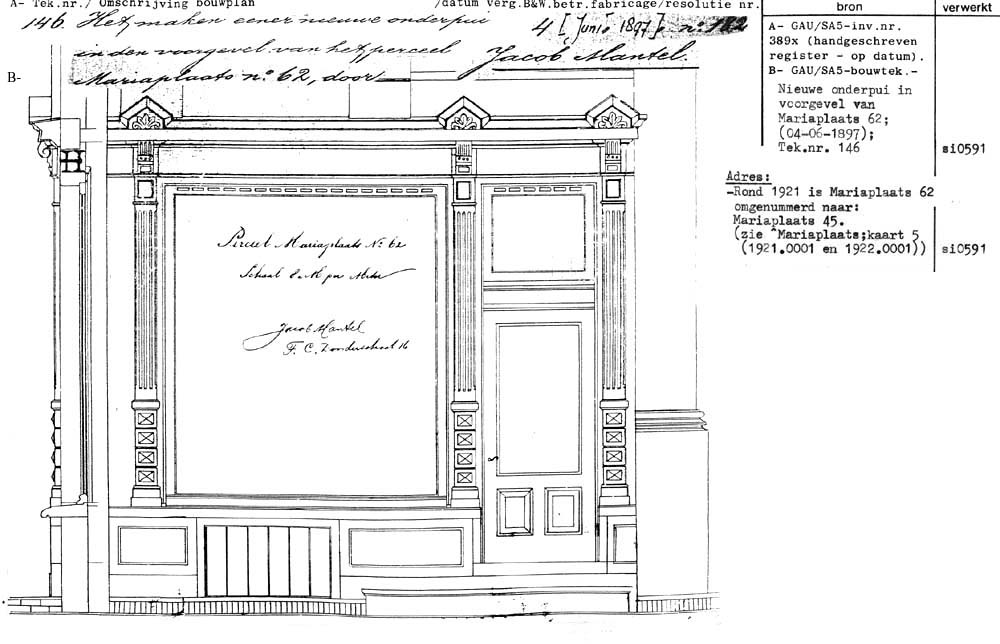 A- Tek.nr./ Omschrijving bouwplan /datum verg.B&W.betr.fabricage/resolutie nr.
146. Het maken eener nieuwe onderpui 4 [Juni 1897]. nº.
in den voorgevel van het perceel Jacob Mantel.
B- Mariaplaats nº 62, door
Perceel Mariaplaats Nº 62
Schaal per Meter
Jacob Mantel
F. C. Donderstraat 16
bron verwerkt
A- GAU/SA5-inv.nr.
389x (handgeschreven
register - op datum).
B- GAU/SA5-bouwtek.-
Nieuwe onderpui in
voorgevel van
Mariaplaats 62;
(04-06-1897);
Tek.nr. 146 si0591
Adres:
-Rond 1921 is Mariaplaats 62
omgenummerd naar:
Mariaplaats 45.
(zie ^Mariaplaats;kaart 5
(1921.0001 en 1922.0001)) si0591